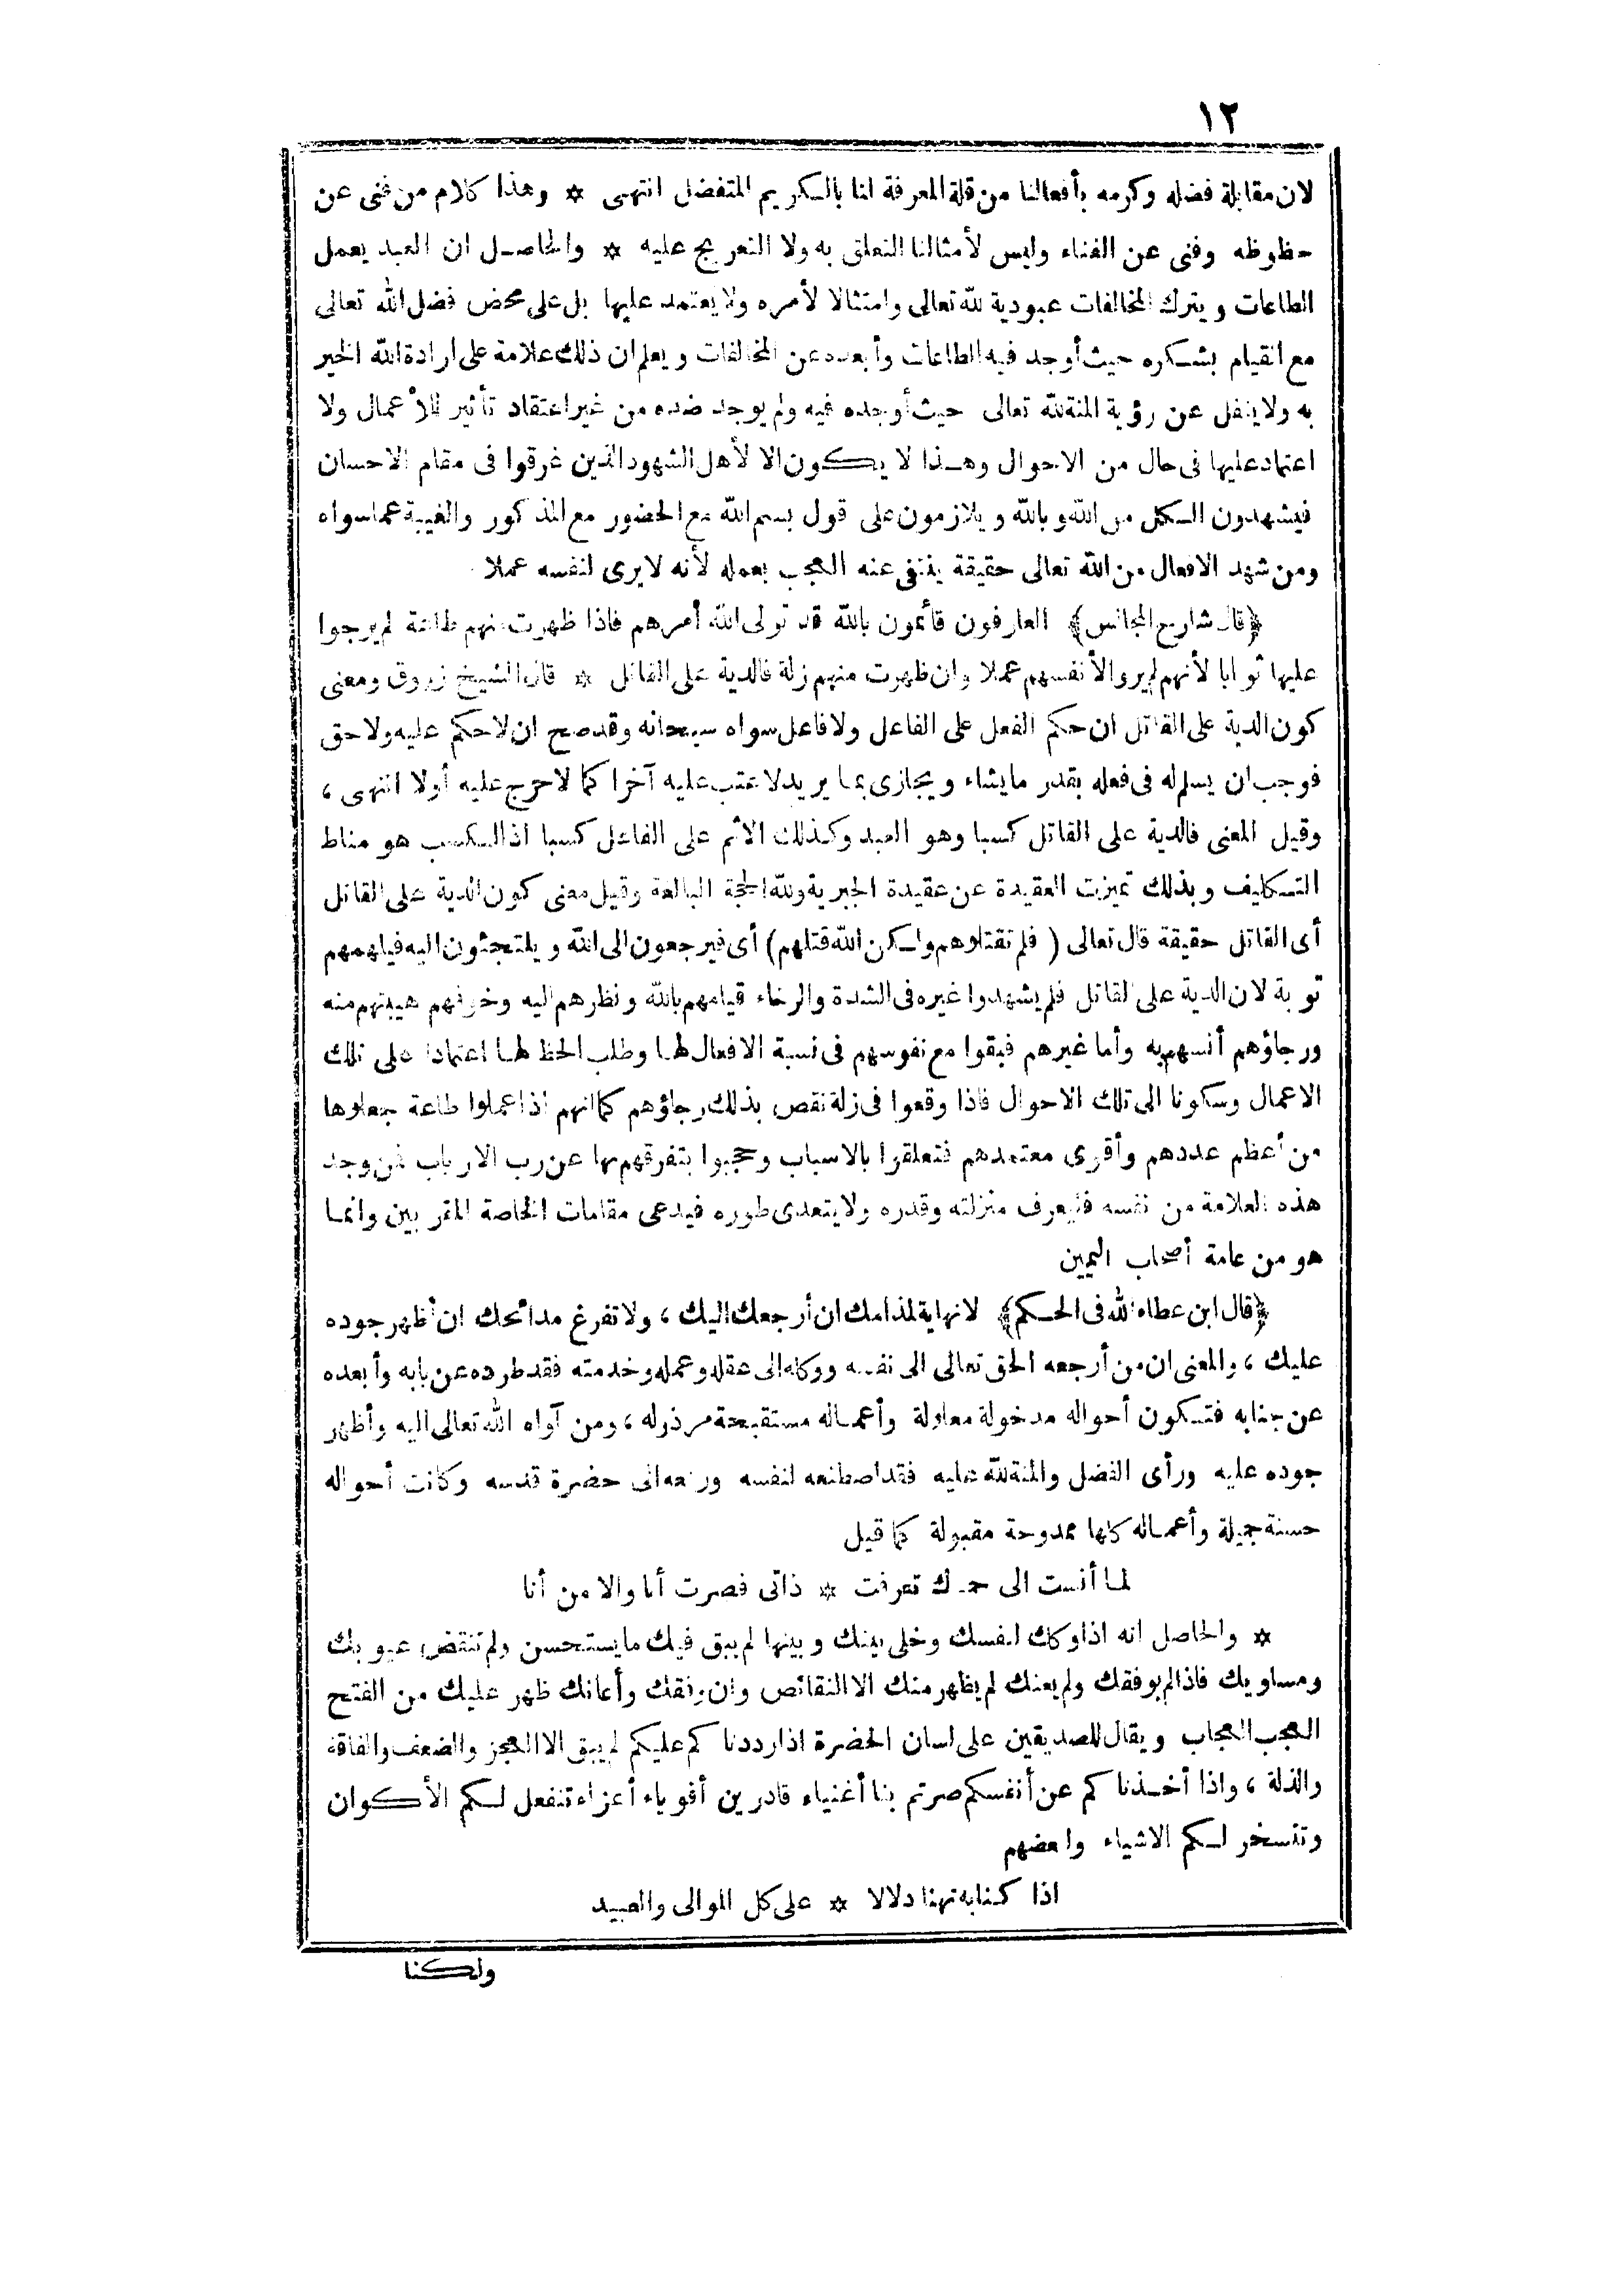 ١٢
لان مقابلة فضله وكرمه بأفعالنا من قلة المعرفة لنا بالكريم المتفضل انتهى * وهذا كلام من فنى عن
حظوظه وفنى عن الفناء وليس لأمثالنا التعلق به ولا التعريج عليه * والحاصل ان العبد يعمل
الطاعات ويترك المخالفات عبودية لله تعالى وامتثالا لأمره ولا يعتمد عليها بل على محض فضل الله تعالى
مع القيام بشكره حيث أوجد فيه الطاعات وأبعده عن المخالفات ويعلم ان ذلك علامة على ارادة الله الخير
به ولا يغفل عن رؤية المنة لله تعالى حيث أوجده فيه ولم يوجد ضده من غير اعتقاد تأثير للأعمال ولا
اعتماد عليها فى حال من الاحوال وهذا لا يكون الا لأهل الشهود الذين غرقوا فى مقام الاحسان
فيشهدون الكل من الله وبالله ويلازمون على قول بسم الله مع الحضور مع المذكور والغيبة عما سواه
ومن شهد الافعال من الله تعالى حقيقة ينتفى عنه العجب بعمله لأنه لا يرى لنفسه عملا
﴿قال شارح المجانس﴾ العارفون قائمون بالله قد تولى الله أمرهم فاذا ظهرت منهم طاعة لم يرجوا
عليها ثوابا لأنهم لم يروا لأنفسهم عملا وان ظهرت منهم زلة فالدية على القاتل * قال الشيخ زروق ومعنى
كون الدية على القاتل ان حكم الفعل على الفاعل ولا فاعل سواه سبحانه وقد صح ان لا حكم عليه ولا حق
فوجب ان يسلم له فى فعله بقدر ما يشاء ويجازى بما يريد لا عتب عليه آخرا كما لا حرج عليه أولا انتهى ،
وقيل المعنى فالدية على القاتل كسبا وهو العبد وكذلك الاثم على الفاعل كسبا اذ الكسب هو مناط
التكليف وبذلك تميزت العقيدة عن عقيدة الجبرية ولله الحجة البالغة وقيل معنى كون الدية على القاتل
أى القاتل حقيقة قال تعالى (فلم تقتلوهم ولكن الله قتلهم) أى فيرجعون الى الله ويلتجئون اليه فيلهمهم
توبة لان الدية على القاتل فلم يشهدوا غيره فى الشدة والرخاء قيامهم بالله ونظرهم اليه وخوفهم هيبتهم منه
ورجاؤهم أنسهم به وأما غيرهم فبقوا مع نفوسهم فى نسبة الافعال لها وطلب الحظ لها اعتمادا على تلك
الاعمال وسكونا الى تلك الاحوال فاذا وقعوا فى زلة نقص بذلك رجاؤهم كما انهم اذا عملوا طاعة جعلوها
من أعظم عددهم وأقوى معتمدهم فتعلقوا بالاسباب وحجبوا بتفرقهم بها عن رب الارباب فمن وجد
هذه العلامة من نفسه فليعرف منزلته وقدره ولا يتعدى طوره فيدعى مقامات الخاصة المقربين وانما
هو من عامة أصحاب اليمين
﴿قال ابن عطاء الله فى الحكم﴾ لا نهاية لمذامك ان أرجعك اليك ، ولا تفرغ مدائحك ان أظهر جوده
عليك ، والمعنى ان من أرجعه الحق تعالى الى نفسه ووكله الى عقله وعمله وخدمته فقد طرده عن بابه وأبعده
عن جنابه فتكون أحواله مدخولة معلولة وأعماله مستقبحة مرذوله ، ومن آواه الله تعالى اليه وأظهر
جوده عليه ورأى الفضل والمنة لله عليه فقد اصطنعه لنفسه ورفعه الى حضرة قدسه وكانت أحواله
حسنة جميلة وأعماله كلها ممدوحة مقبولة كما قيل
لما أنست الى حماك تعرفت * ذاتى فصرت أنا والا من أنا
* والحاصل انه اذا وكلك لنفسك وخلى بينك وبينها لم يبق فيك ما يستحسن ولم تنقض عيوبك
ومساويك فاذا لم يوفقك ولم يعنك لم يظهر منك الا النقائص وان وفقك وأعانك ظهر عليك من الفتح
العجب العجاب ويقال للصديقين على لسان الحضرة اذا رددناكم عليكم لم يبق الا العجز والضعف والفاقة
والذلة ، واذا أخذناكم عن أنفسكم صرتم بنا أغنياء قادرين أقوياء أعزاء تنفعل لكم الأكوان
وتتسخر لكم الاشياء ولبعضهم
اذا كنا به تهنا دلالا * على كل الموالى والعبيد
ولكنا